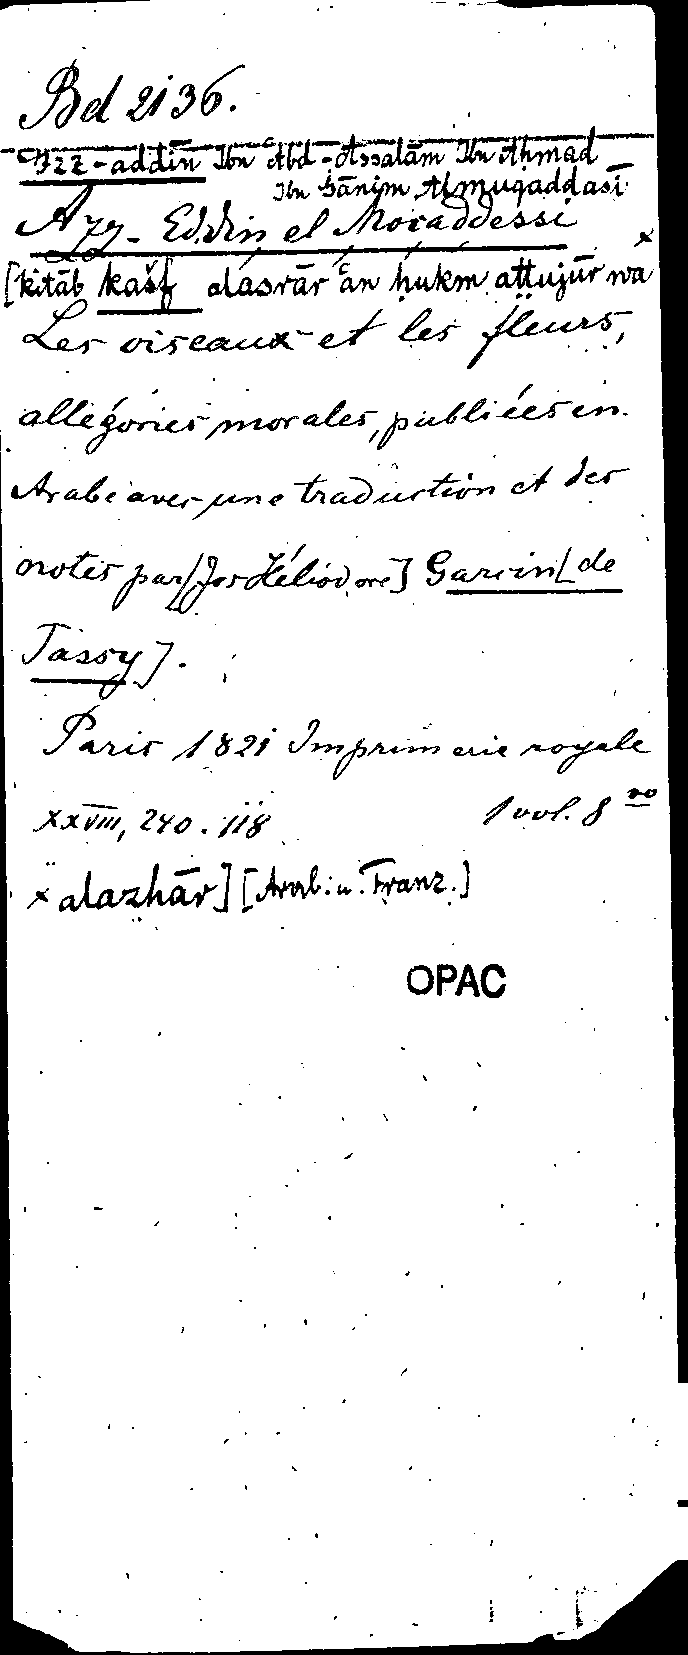 Bd 2136.
ʿIzz-addīn Ibn ʿAbd-Assalām Ibn Aḥmad
Ibn Ġānim Almuqaddasī
Azz-Eddin el Mocaddessi
[kitāb kašf alasrār ʿan ḥukm aṭṭujūr wa ×
Les oiseaux et les fleurs,
allégories morales, publiées en
Arabe avec une traduction et des
notes par [Jos Héliodore] Garcin [de
Tassy].
Paris 1821 Imprimerie royale
XXVIII, 240. 118 1 vol. 8vo
× alazhār] [Arab. u. Franz.]
OPAC